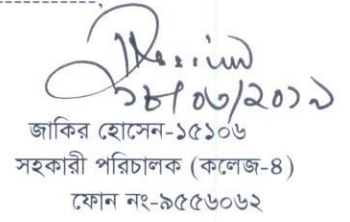 ১৮/০৬/২০১৯
জাকির হোসেন-১৫১০৬
সহকারী পরিচালক (কলেজ-৪)
ফোন নং-৯৫৫৬০৬২